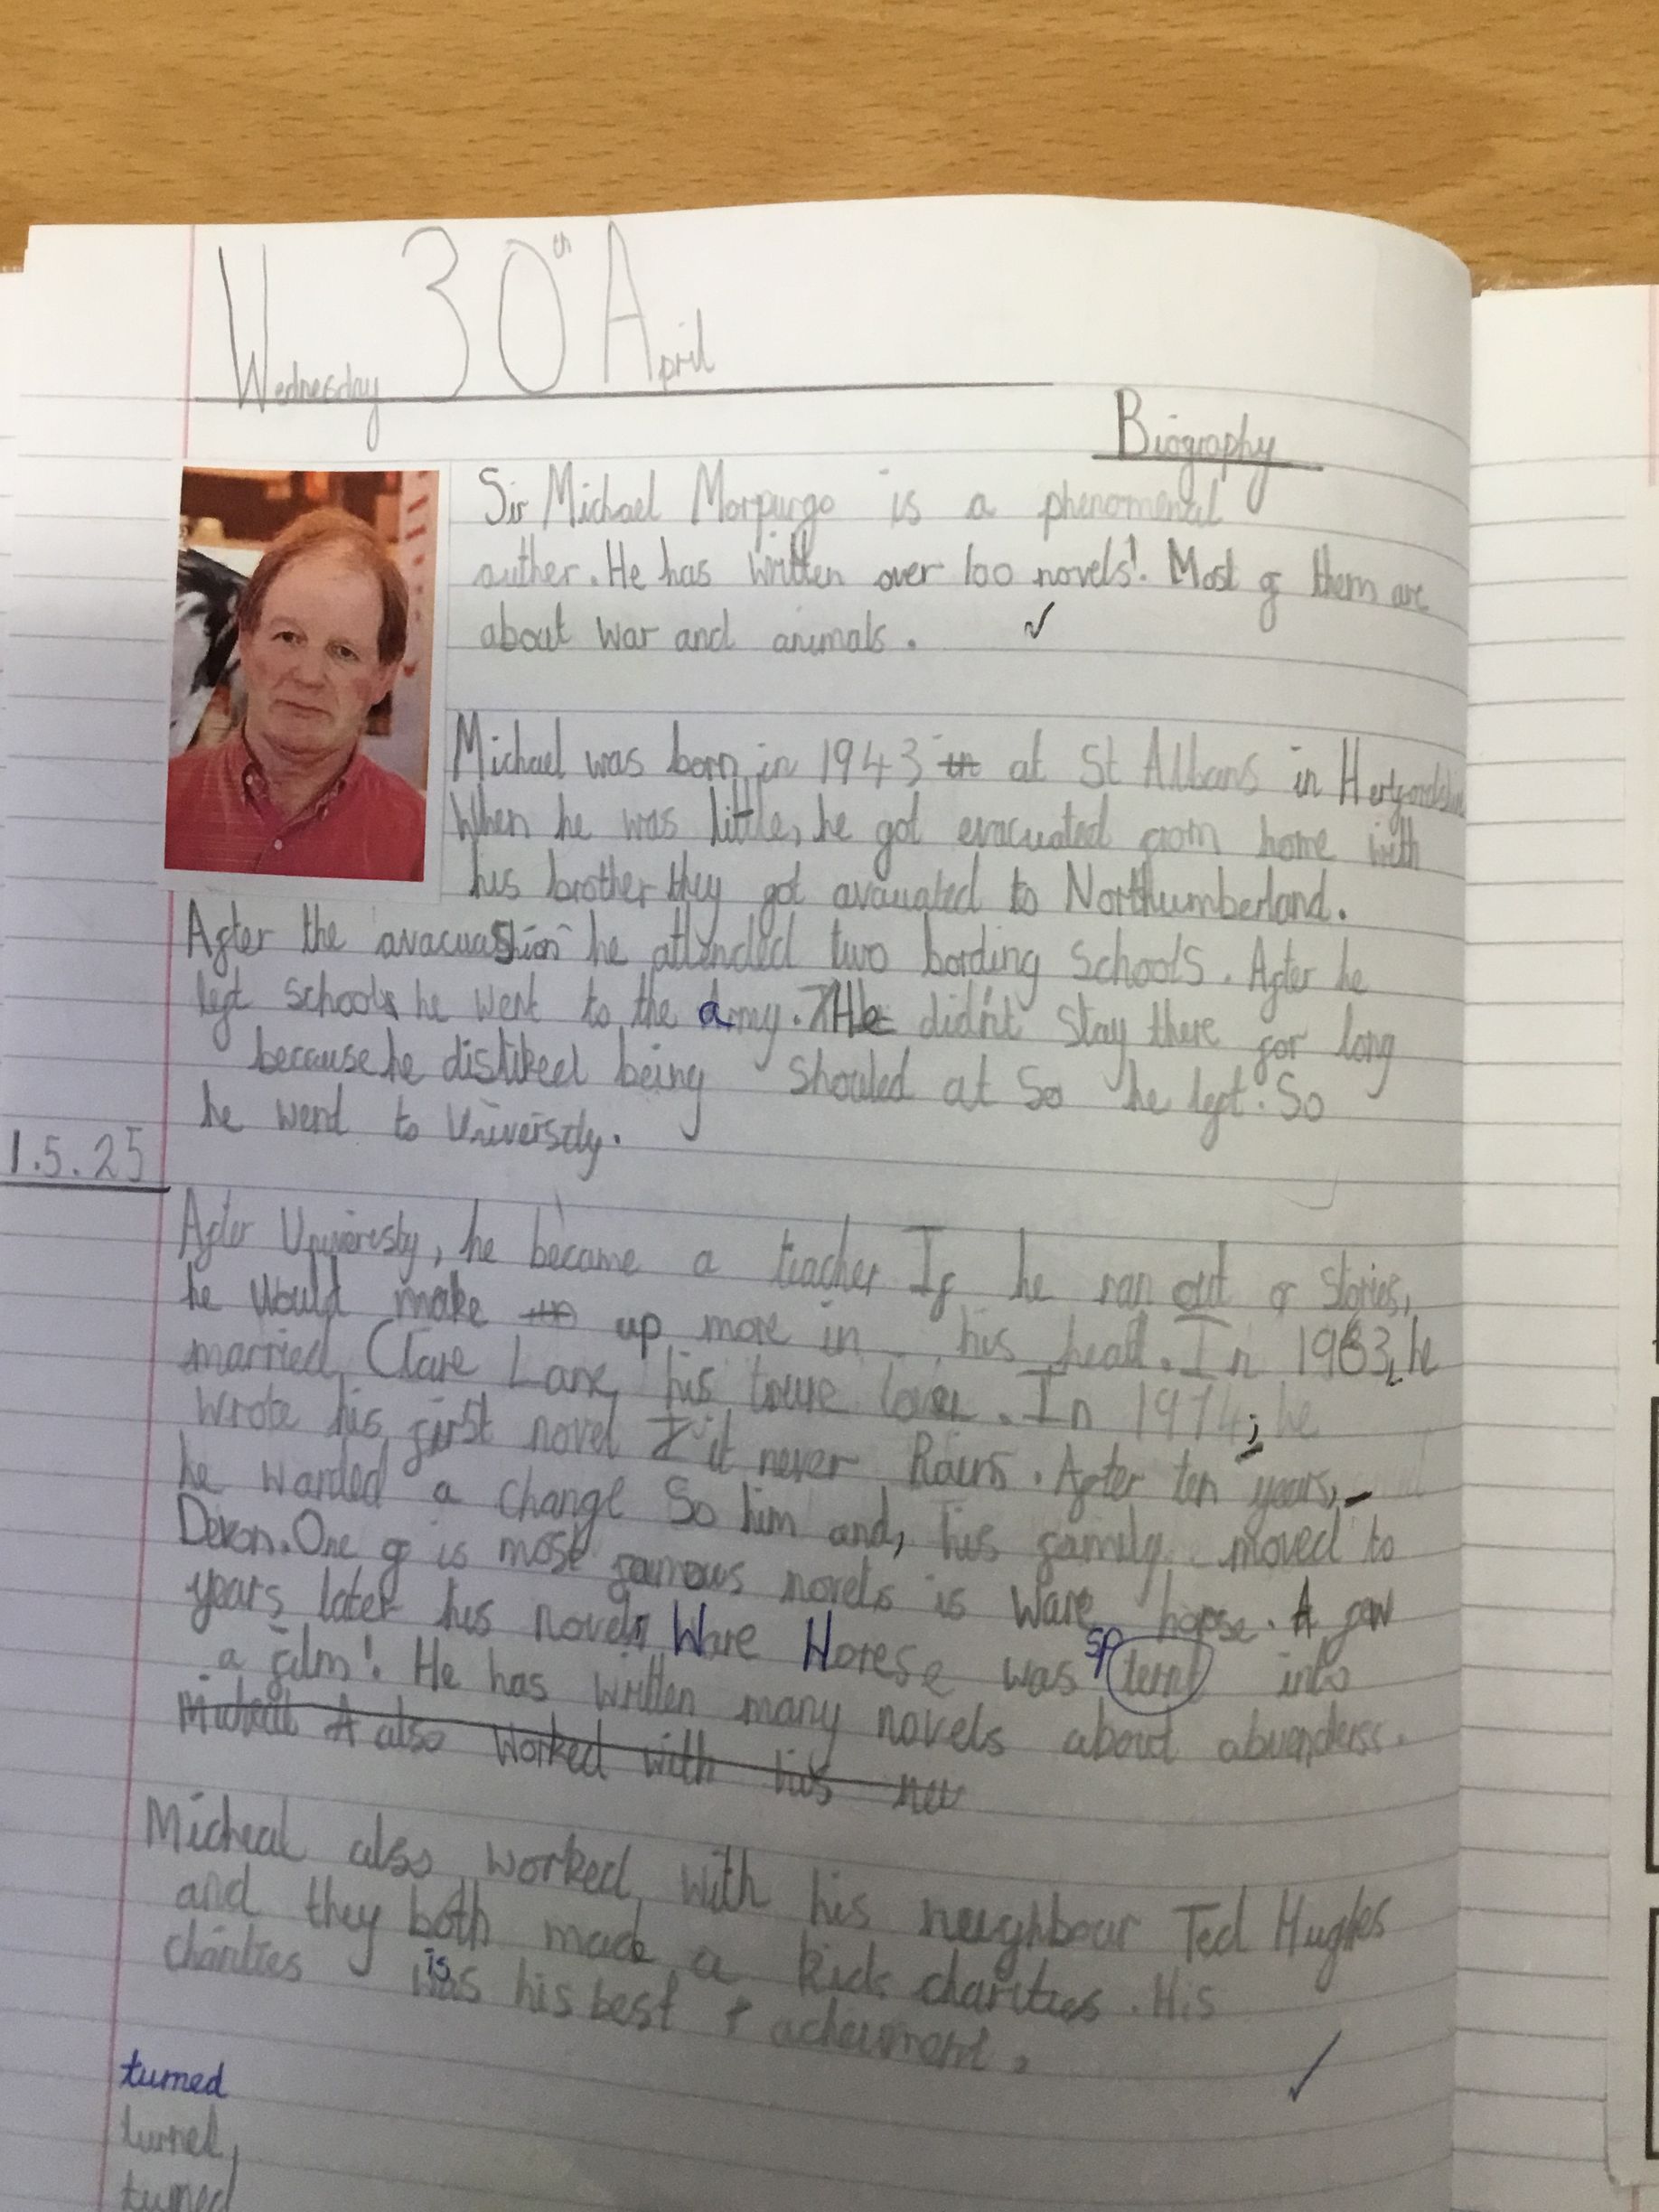 Wednesday 30th April
Biography
Sir Michael Morpurgo is a phenomenal
auther. He has written over 100 novels!. Most of them are
about war and animals.
Michael was born in 1943 in at St Albans in Hertfordshire
When he was little, he got evacuated from home with
his brother they got avacuated to Northumberland.
After the avacuashion he attended two bording schools. After he
left school he went to the army. He didn't stay there for long
because he disliked being shouted at so he left. So
he went to Universtiy.
1.5.25
After Univeresty, he became a teacher If he ran out of stories,
he would make up more in his head. In 1963, he
married Clare Lane, his treue lover. In 1974, he
wrote his first novel it never Rains. After ten years,
he wanted a change So him and, his family moved to
Devon. One of is most famous novels is Ware horse. A few
years later his novel Ware Horese was sp ternt into
a film!. He has written many novels about
Micheal A also worked with his nei
Micheal also worked with his neighbour Ted Hughes
and they both made a kids charities. His
charities is his best acheivment.
turned
turned,
turned